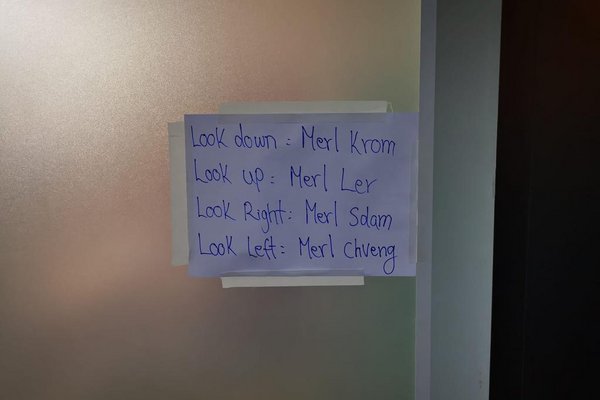 Look down = Merl Krom
Look up = Merl Ler
Look Right: Merl Sdam
Look Left: Merl Chveng